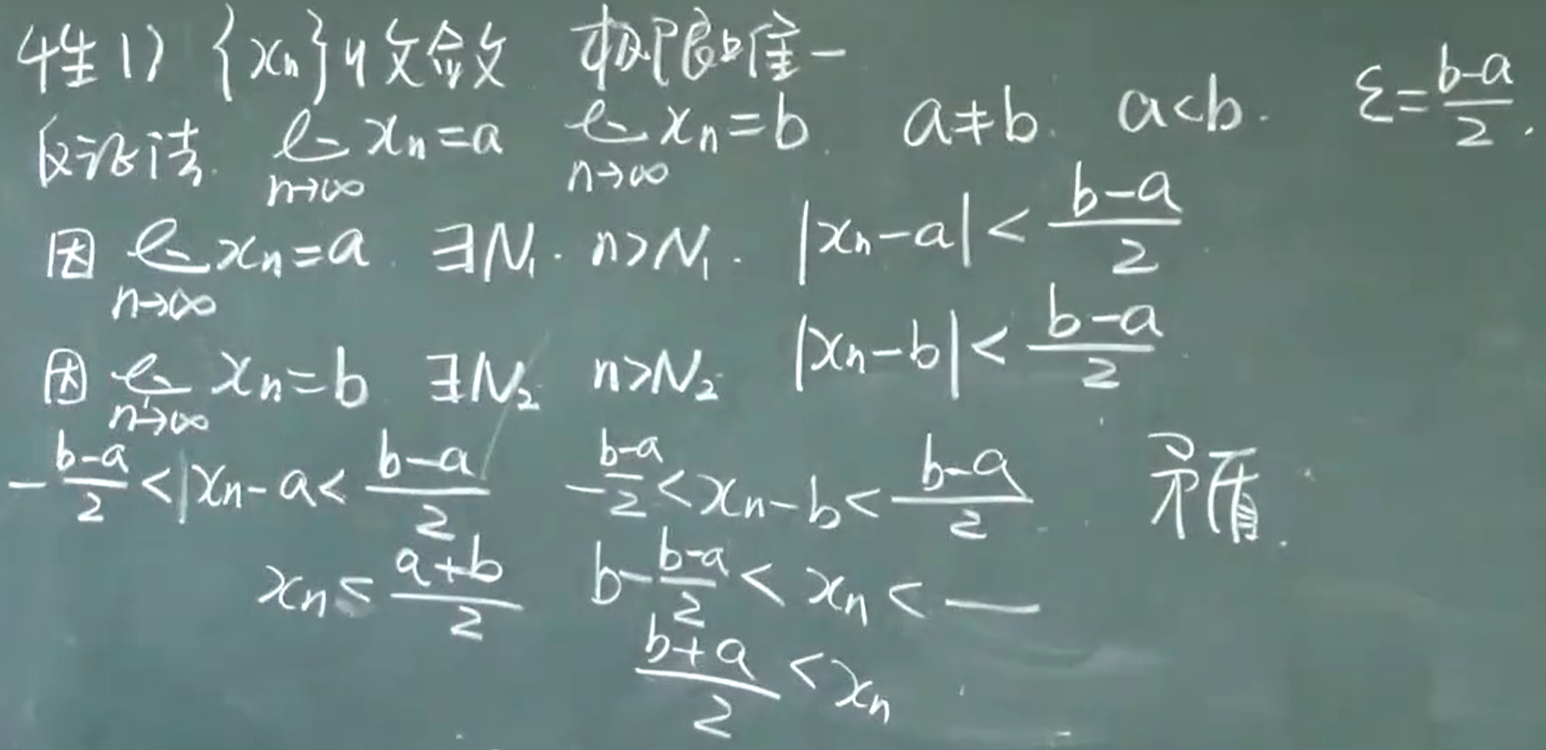 性1) {xn}收敛 极限唯一
反证法. lim n→∞ xn=a lim n→∞ xn=b. a≠b. a<b. ε=(b-a)/2.
因 lim n→∞ xn=a. ∃N₁. n>N₁. |xn-a|<(b-a)/2.
因 lim n→∞ xn=b ∃N₂ n>N₂ |xn-b|<(b-a)/2.
-(b-a)/2<|xn-a<(b-a)/2 -(b-a)/2<xn-b<(b-a)/2 矛盾.
xn<(a+b)/2 b-(b-a)/2<xn<—
(b+a)/2<xn